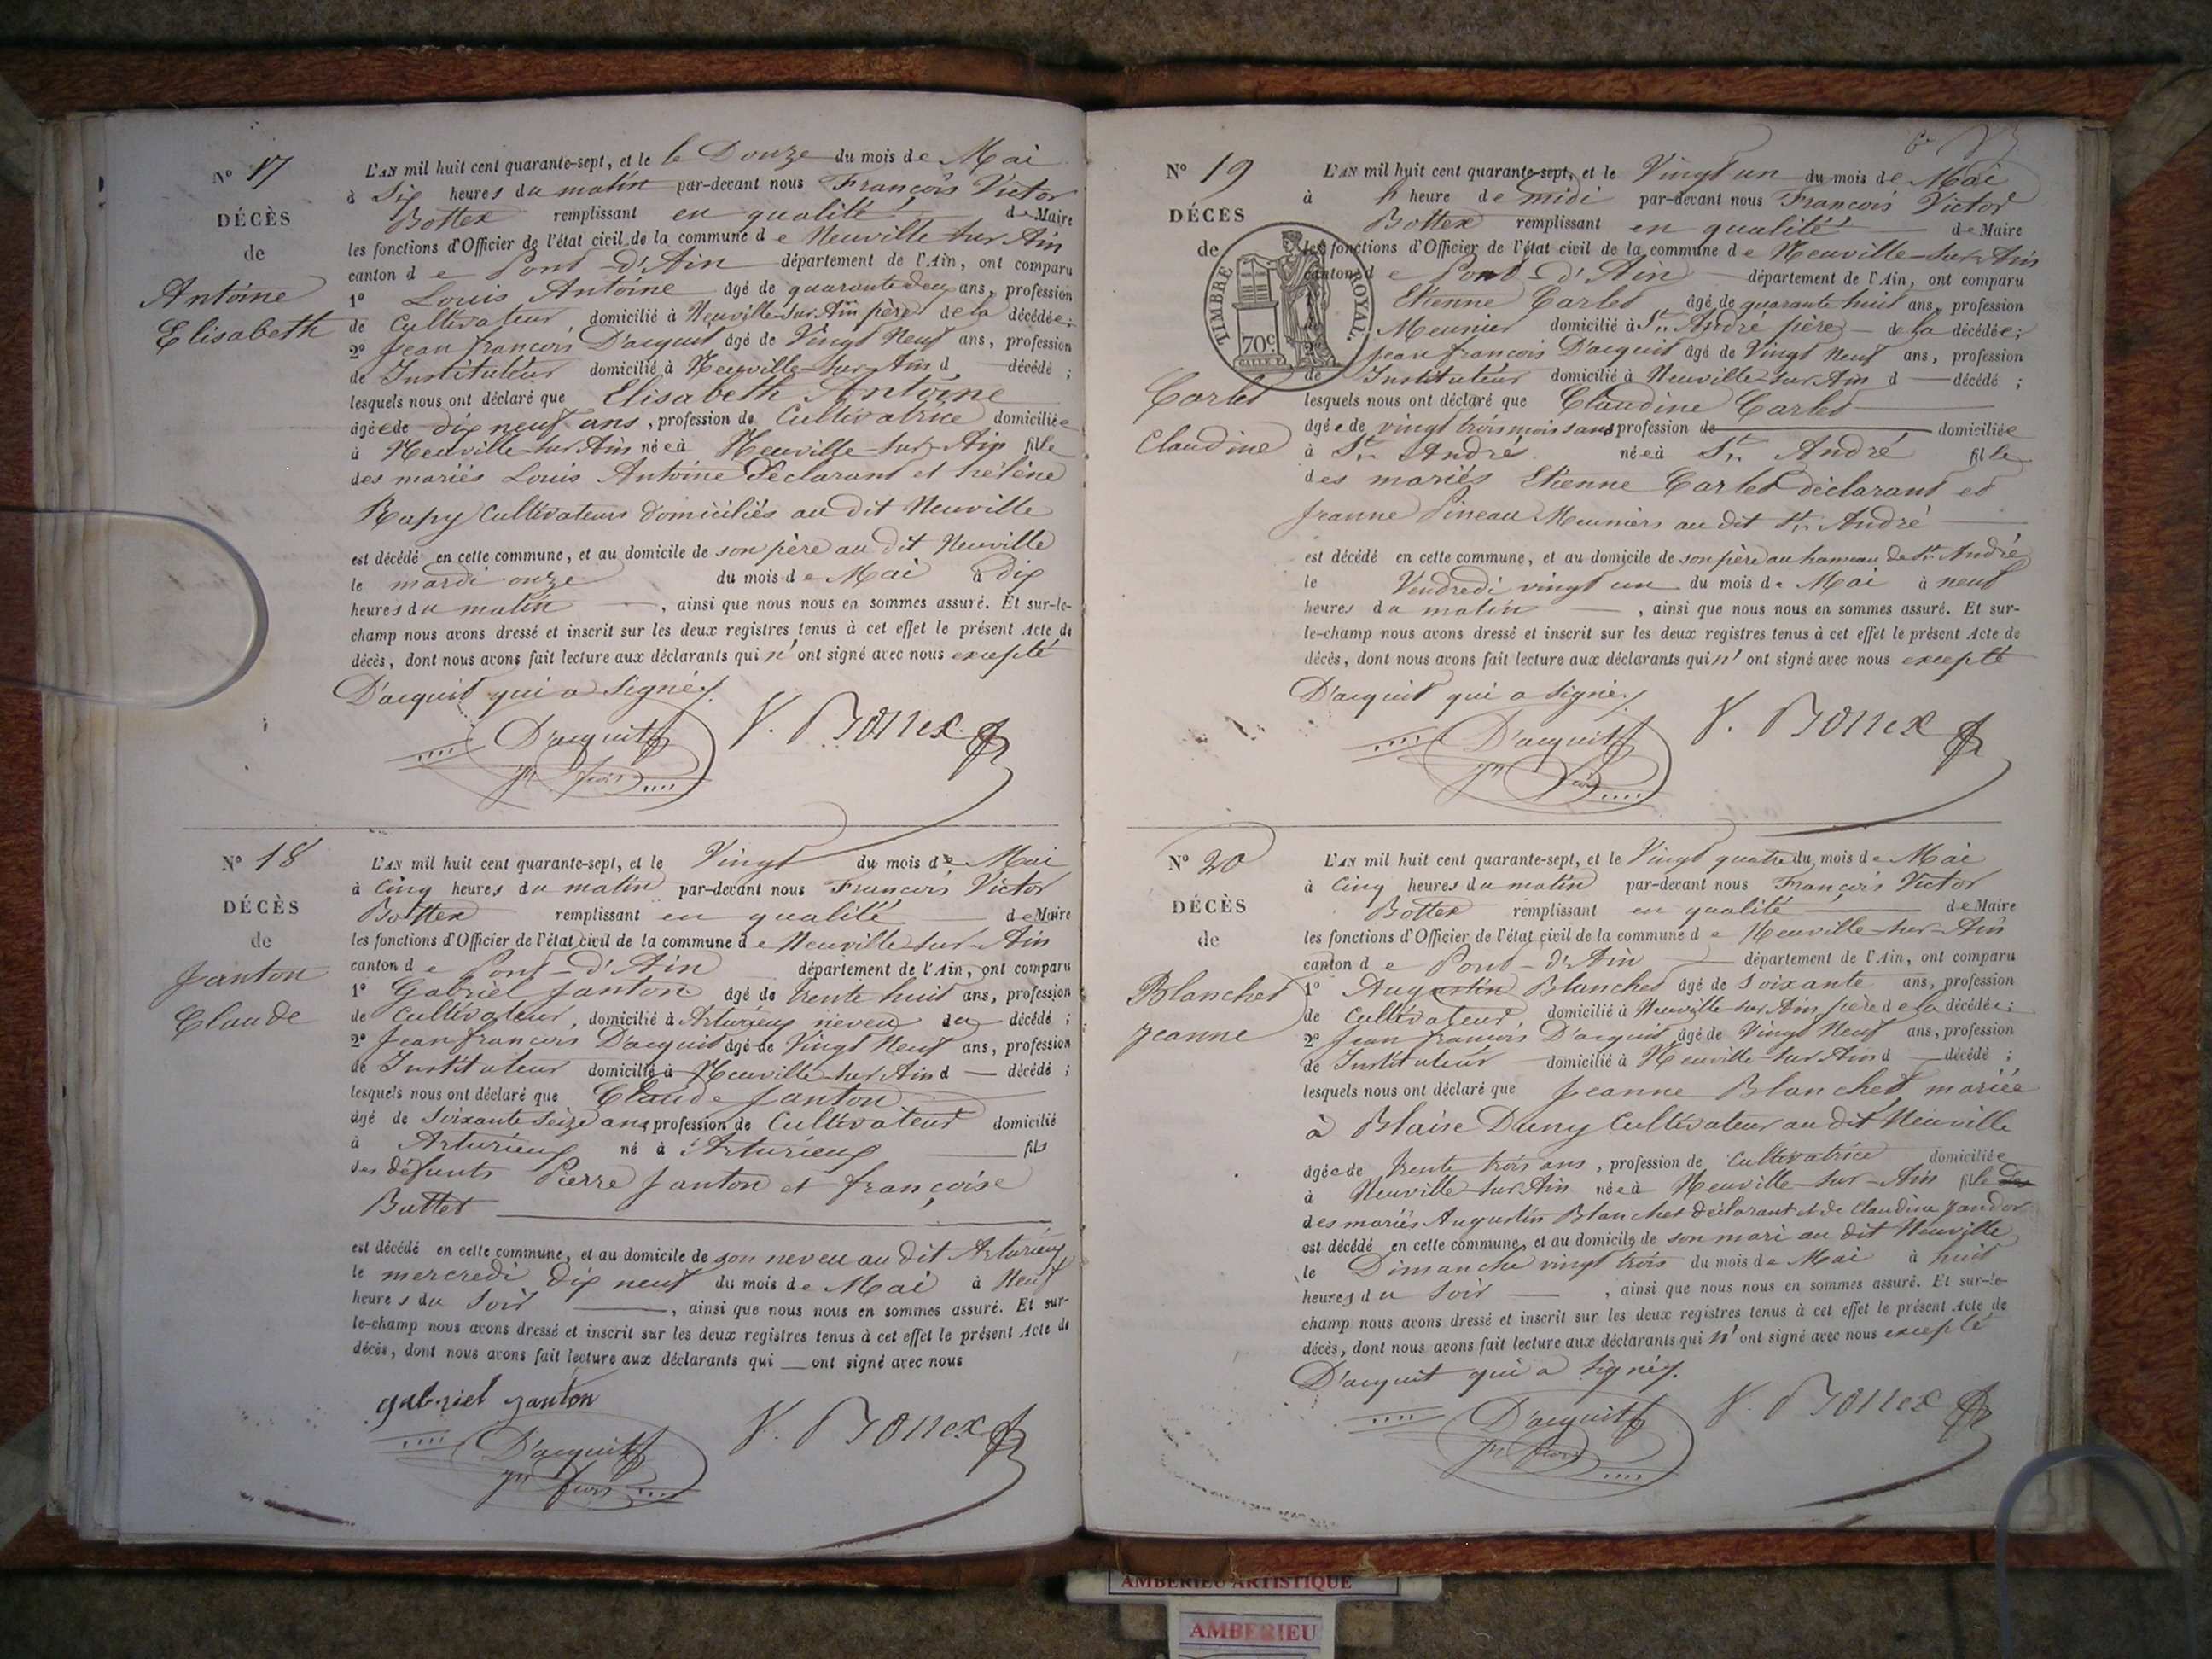 N° 17
DÉCÈS
de
Antoine
Elisabeth
L'AN mil huit cent quarante-sept, et le le Douze du mois de Mai
à Six heures du matin par-devant nous François Victor
Bottex remplissant en qualité de Maire
les fonctions d'Officier de l'état civil de la commune de Neuville sur Ain
canton de Pont-d'Ain département de l'Ain, ont comparu
1° Louis Antoine âgé de quarante deux ans, profession
de Cultivateur, domicilié à Neuville-sur-Ain père de la décédée;
2° Jean françois D'acquit âgé de Vingt Neuf ans, profession
de Instituteur domicilié à Neuville-sur-Ain d décédé;
lesquels nous ont déclaré que Elisabeth Antoine
âgée de dix neuf ans, profession de Cultivatrice domiciliée
à Neuville-sur-Ain née à Neuville-sur-Ain fille
des mariés Louis Antoine Déclarant et hélène
Rapy Cultivateurs domiciliés au dit Neuville
est décédé en cette commune, et au domicile de son père au dit Neuville
le mardi onze du mois de Mai à dix
heures du matin, ainsi que nous nous en sommes assuré. Et sur-le-
champ nous avons dressé et inscrit sur les deux registres tenus à cet effet le présent Acte de
décès, dont nous avons fait lecture aux déclarants qui n'ont signé avec nous excepté
D'acquit qui a signé.
D'acquit
V. Bottex
N° 18
DÉCÈS
de
Janton
Claude
L'AN mil huit cent quarante-sept, et le Vingt du mois de Mai
à Cinq heures du matin par-devant nous François Victor
Bottex remplissant en qualité de Maire
les fonctions d'Officier de l'état civil de la commune de Neuville-sur-Ain
canton de Pont-d'Ain département de l'Ain, ont comparu
1° Gabriel Janton âgé de trente huit ans, profession
de Cultivateur, domicilié à Arturieux neveu du décédé;
2° Jean françois D'acquit âgé de Vingt Neuf ans, profession
de Instituteur domicilié à Neuville-sur-Ain d décédé;
lesquels nous ont déclaré que Claude Janton
âgé de Soixante Seize ans profession de Cultivateur domicilié
à Arturieux né à Arturieux fils
des défunts Pierre Janton et françoise
Buttet
est décédé en cette commune, et au domicile de son neveu au dit Arturieux
le mercredi dix neuf du mois de Mai à Neuf
heures du Soir, ainsi que nous nous en sommes assuré. Et sur-
le-champ nous avons dressé et inscrit sur les deux registres tenus à cet effet le présent Acte de
décès, dont nous avons fait lecture aux déclarants qui ont signé avec nous
gabriel janton
D'acquit
V. Bottex
N° 19
DÉCÈS
de
TIMBRE ROYAL.
70c
Carlet
Claudine
L'AN mil huit cent quarante-sept, et le Vingt un du mois de Mai
à heure de midi par-devant nous François Victor
Bottex remplissant en qualité de Maire
les fonctions d'Officier de l'état civil de la commune de Neuville-sur-Ain
canton de Pont-d'Ain département de l'Ain, ont comparu
Etienne Carlet âgé de quarante huit ans, profession
Meunier domicilié à St. André père de la décédée;
2° Jean françois D'acquit âgé de Vingt Neuf ans, profession
de Instituteur domicilié à Neuville-sur-Ain d décédé;
lesquels nous ont déclaré que Claudine Carlet
âgée de vingt trois mois sans profession de domiciliée
à St. André née à St. André fille
des mariés Etienne Carlet déclarant et
Jeanne Pineau Meuniers au dit St. André
est décédé en cette commune, et au domicile de son père au hameau de St. André
le Vendredi vingt un du mois de Mai à neuf
heures du matin, ainsi que nous nous en sommes assuré. Et sur-
le-champ nous avons dressé et inscrit sur les deux registres tenus à cet effet le présent Acte de
décès, dont nous avons fait lecture aux déclarants qui n'ont signé avec nous excepté
D'acquit qui a signé.
D'acquit
V. Bottex
N° 20
DÉCÈS
de
Blanchet
Jeanne
L'AN mil huit cent quarante-sept, et le Vingt quatre du mois de Mai
à Cinq heures du matin par-devant nous François Victor
Bottex remplissant en qualité de Maire
les fonctions d'Officier de l'état civil de la commune de Neuville-sur-Ain
canton de Pont-d'Ain département de l'Ain, ont comparu
1° Augustin Blanchet âgé de Soixante ans, profession
de Cultivateur, domicilié à Neuville-sur-Ain père de la décédée;
2° Jean françois D'acquit âgé de Vingt Neuf ans, profession
de Instituteur domicilié à Neuville-sur-Ain d décédé;
lesquels nous ont déclaré que Jeanne Blanchet mariée
à Blaise Dany Cultivateur au dit Neuville
âgée de trente trois ans, profession de Cultivatrice domiciliée
à Neuville-sur-Ain née à Neuville-sur-Ain fille
des mariés Augustin Blanchet déclarant et de Claudine
est décédé en cette commune, et au domicile de son mari au dit Neuville
le Dimanche vingt trois du mois de Mai à huit
heures du Soir, ainsi que nous nous en sommes assuré. Et sur-le-
champ nous avons dressé et inscrit sur les deux registres tenus à cet effet le présent Acte de
décès, dont nous avons fait lecture aux déclarants qui n'ont signé avec nous excepté
D'acquit qui a signé.
D'acquit
V. Bottex
AMBERIEU ARTISTIQUE
AMBERIEU